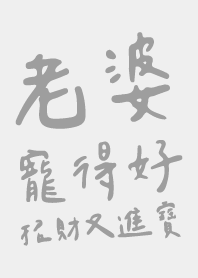 老婆
寵得好
招財又進寶